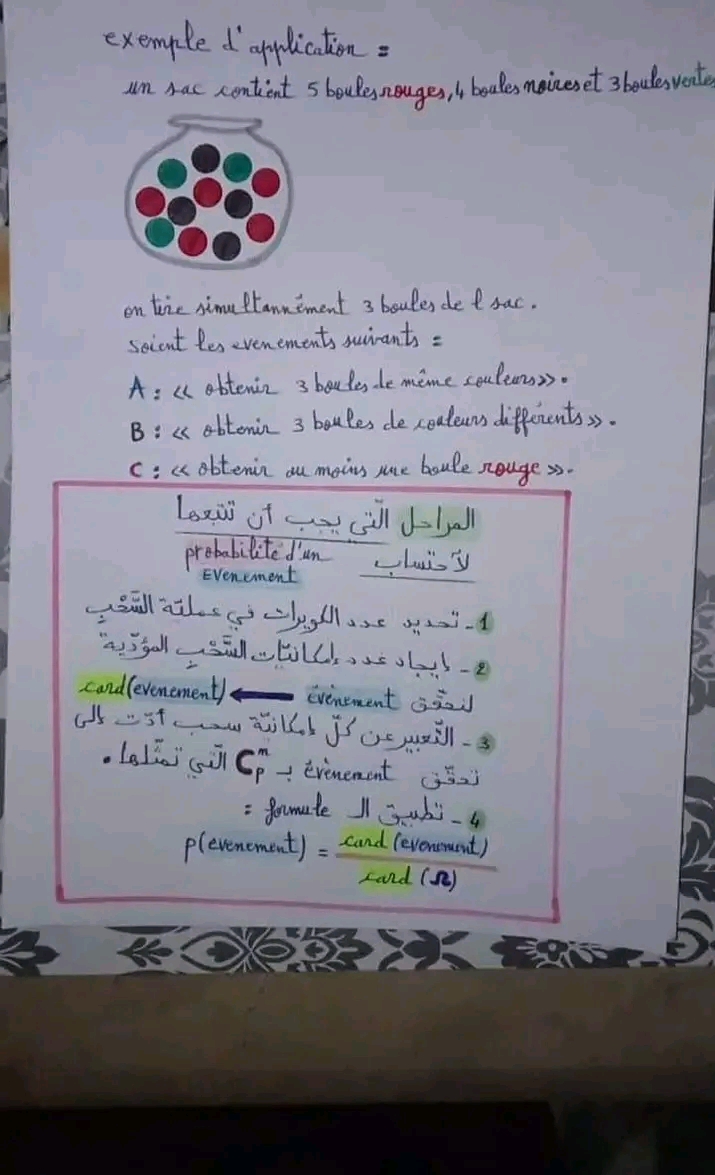 exemple d'application =
un sac contient 5 boules rouges, 4 boules noires et 3 boules vertes
on tire simultannément 3 boules de l sac.
soient les evenements suivants =
A : << obtenir 3 boules de même couleurs >>.
B : << obtenir 3 boules de couleurs différents >>.
C : << obtenir au moins une boule rouge >>.
المراحل الّتي يجب أن تتبعها
لاحتساب probabilité d'un
evenement
1 - تحديد عدد الكويرات في عمليّة السَّحْبِ
2 - إيجاد عدد إمكانيّات السَّحْبِ المؤدّية
لتحقّق évènement ← card(evenement)
3 - التّعبير عن كلّ إمكانيّة سحب أدّت إلى
تحقّق évènement بـ C_p^m الّتي تمثّلها.
4 - تطبيق الـ formule =
p(evenement) = card (evenement)
card (Ω)